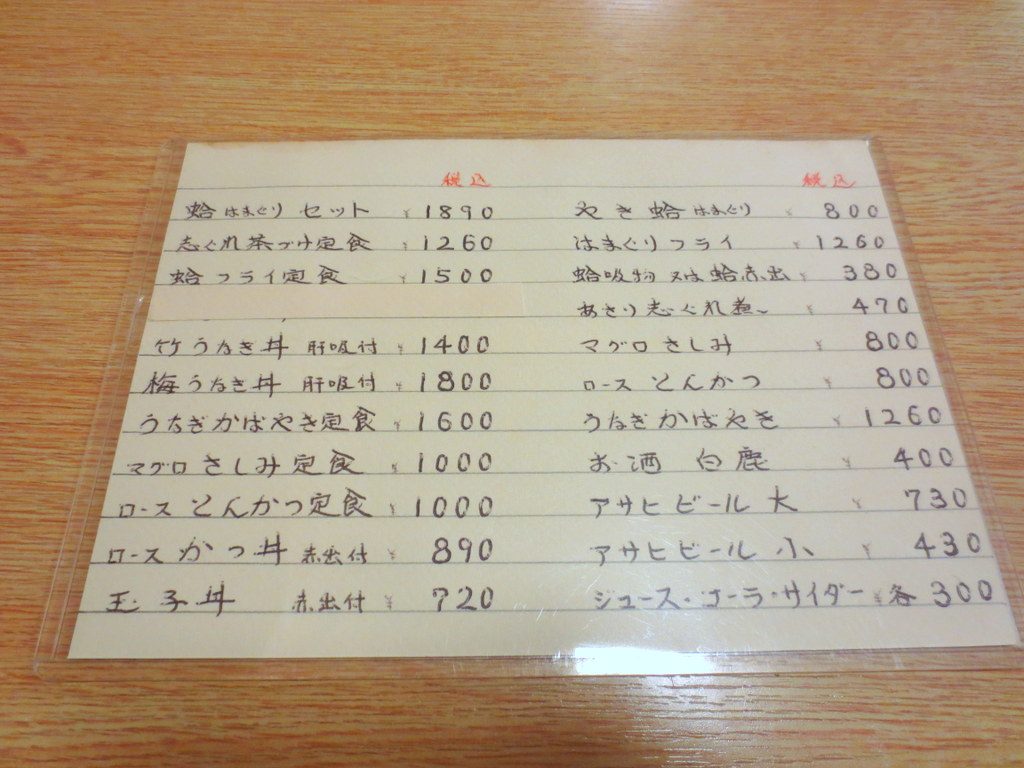 税込
蛤 はまぐり セット ¥ 1890
志ぐれ茶づけ定食 ¥ 1260
蛤フライ定食 ¥ 1500
竹うなぎ丼 肝吸付 ¥ 1400
梅うなぎ丼 肝吸付 ¥ 1800
うなぎかばやき定食 ¥ 1600
マグロさしみ定食 ¥ 1000
ロースとんかつ定食 ¥ 1000
ロースかつ丼 赤出付 ¥ 890
玉子丼 赤出付 ¥ 720
税込
やき蛤 はまぐり ¥ 800
はまぐりフライ ¥ 1260
蛤吸物又は蛤赤出 ¥ 380
あさり志ぐれ煮 ¥ 470
マグロさしみ ¥ 800
ロースとんかつ ¥ 800
うなぎかばやき ¥ 1260
お酒 白鹿 ¥ 400
アサヒビール 大 ¥ 730
アサヒビール 小 ¥ 430
ジュース・コーラ・サイダー ¥ 各 300